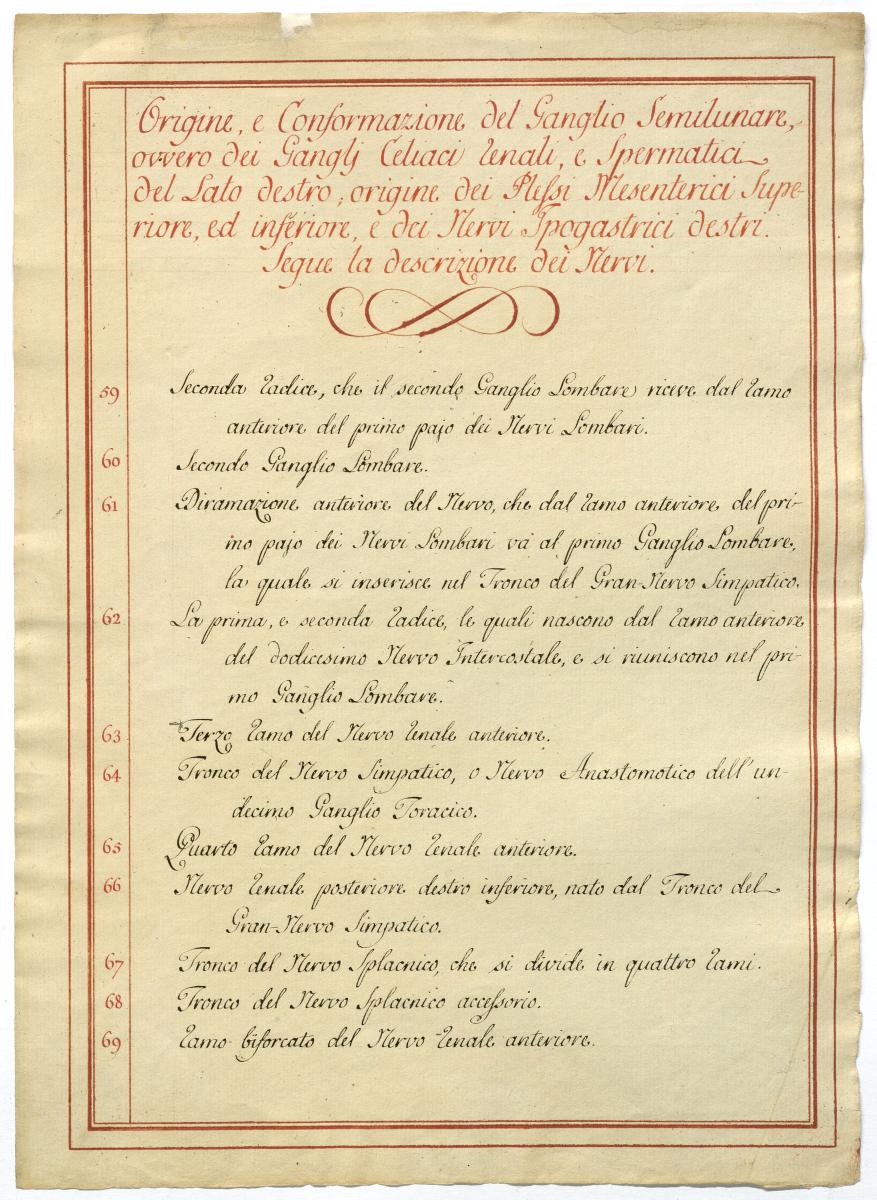 Origine, e Conformazione del Ganglio Semilunare,
ovvero dei Ganglj Celiaci Renali, e Spermatici
del Lato destro, origine dei Plessi Mesenterici Supe-
riore, ed inferiore, e dei Nervi Ipogastrici destri.
Segue la descrizione dei Nervi.
59 Seconda Radice, che il secondo Ganglio Lombare riceve dal Ramo
anteriore del primo pajo dei Nervi Lombari.
60 Secondo Ganglio Lombare.
61 Diramazione anteriore del Nervo, che dal Ramo anteriore del pri-
mo pajo dei Nervi Lombari và al primo Ganglio Lombare,
la quale si inserisce nel Tronco del Gran-Nervo Simpatico.
62 La prima, e seconda Radice, le quali nascono dal Ramo anteriore
del dodicesimo Nervo Intercostale, e si riuniscono nel pri-
mo Ganglio Lombare.
63 Terzo Ramo del Nervo Renale anteriore.
64 Tronco del Nervo Simpatico, o Nervo Anastomotico dell'un-
decimo Ganglio Toracico.
65 Quarto Ramo del Nervo Renale anteriore.
66 Nervo Renale posteriore destro inferiore, nato dal Tronco del
Gran-Nervo Simpatico.
67 Tronco del Nervo Splacnico, che si divide in quattro Rami.
68 Tronco del Nervo Splacnico accessorio.
69 Ramo biforcato del Nervo Renale anteriore.